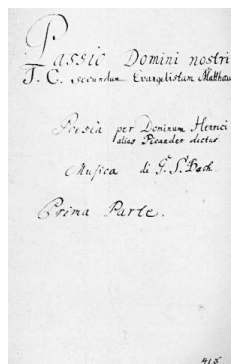 Passio Domini nostri
J. C. secundum Evangelistam Matthæu
Poesia per Dominum Henrici
alias Picander dictus
Musica di G. S. Bach.
Prima Parte.